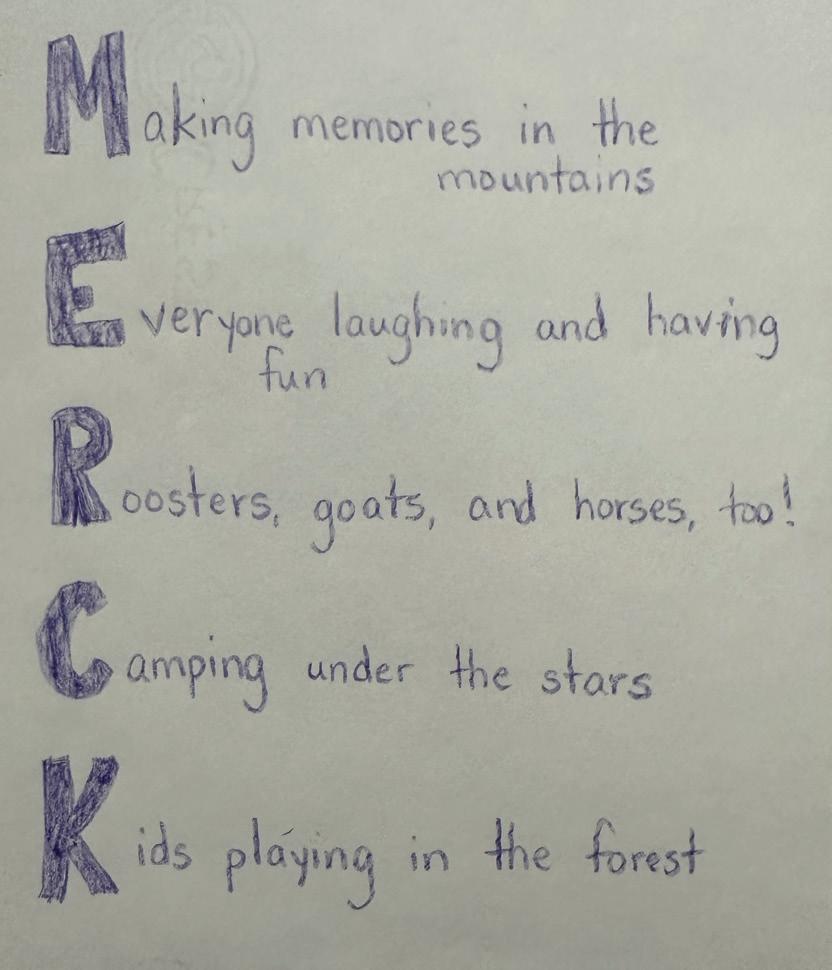 Making memories in the
mountains
Everyone laughing and having
fun
Roosters, goats, and horses, too!
Camping under the stars
Kids playing in the forest